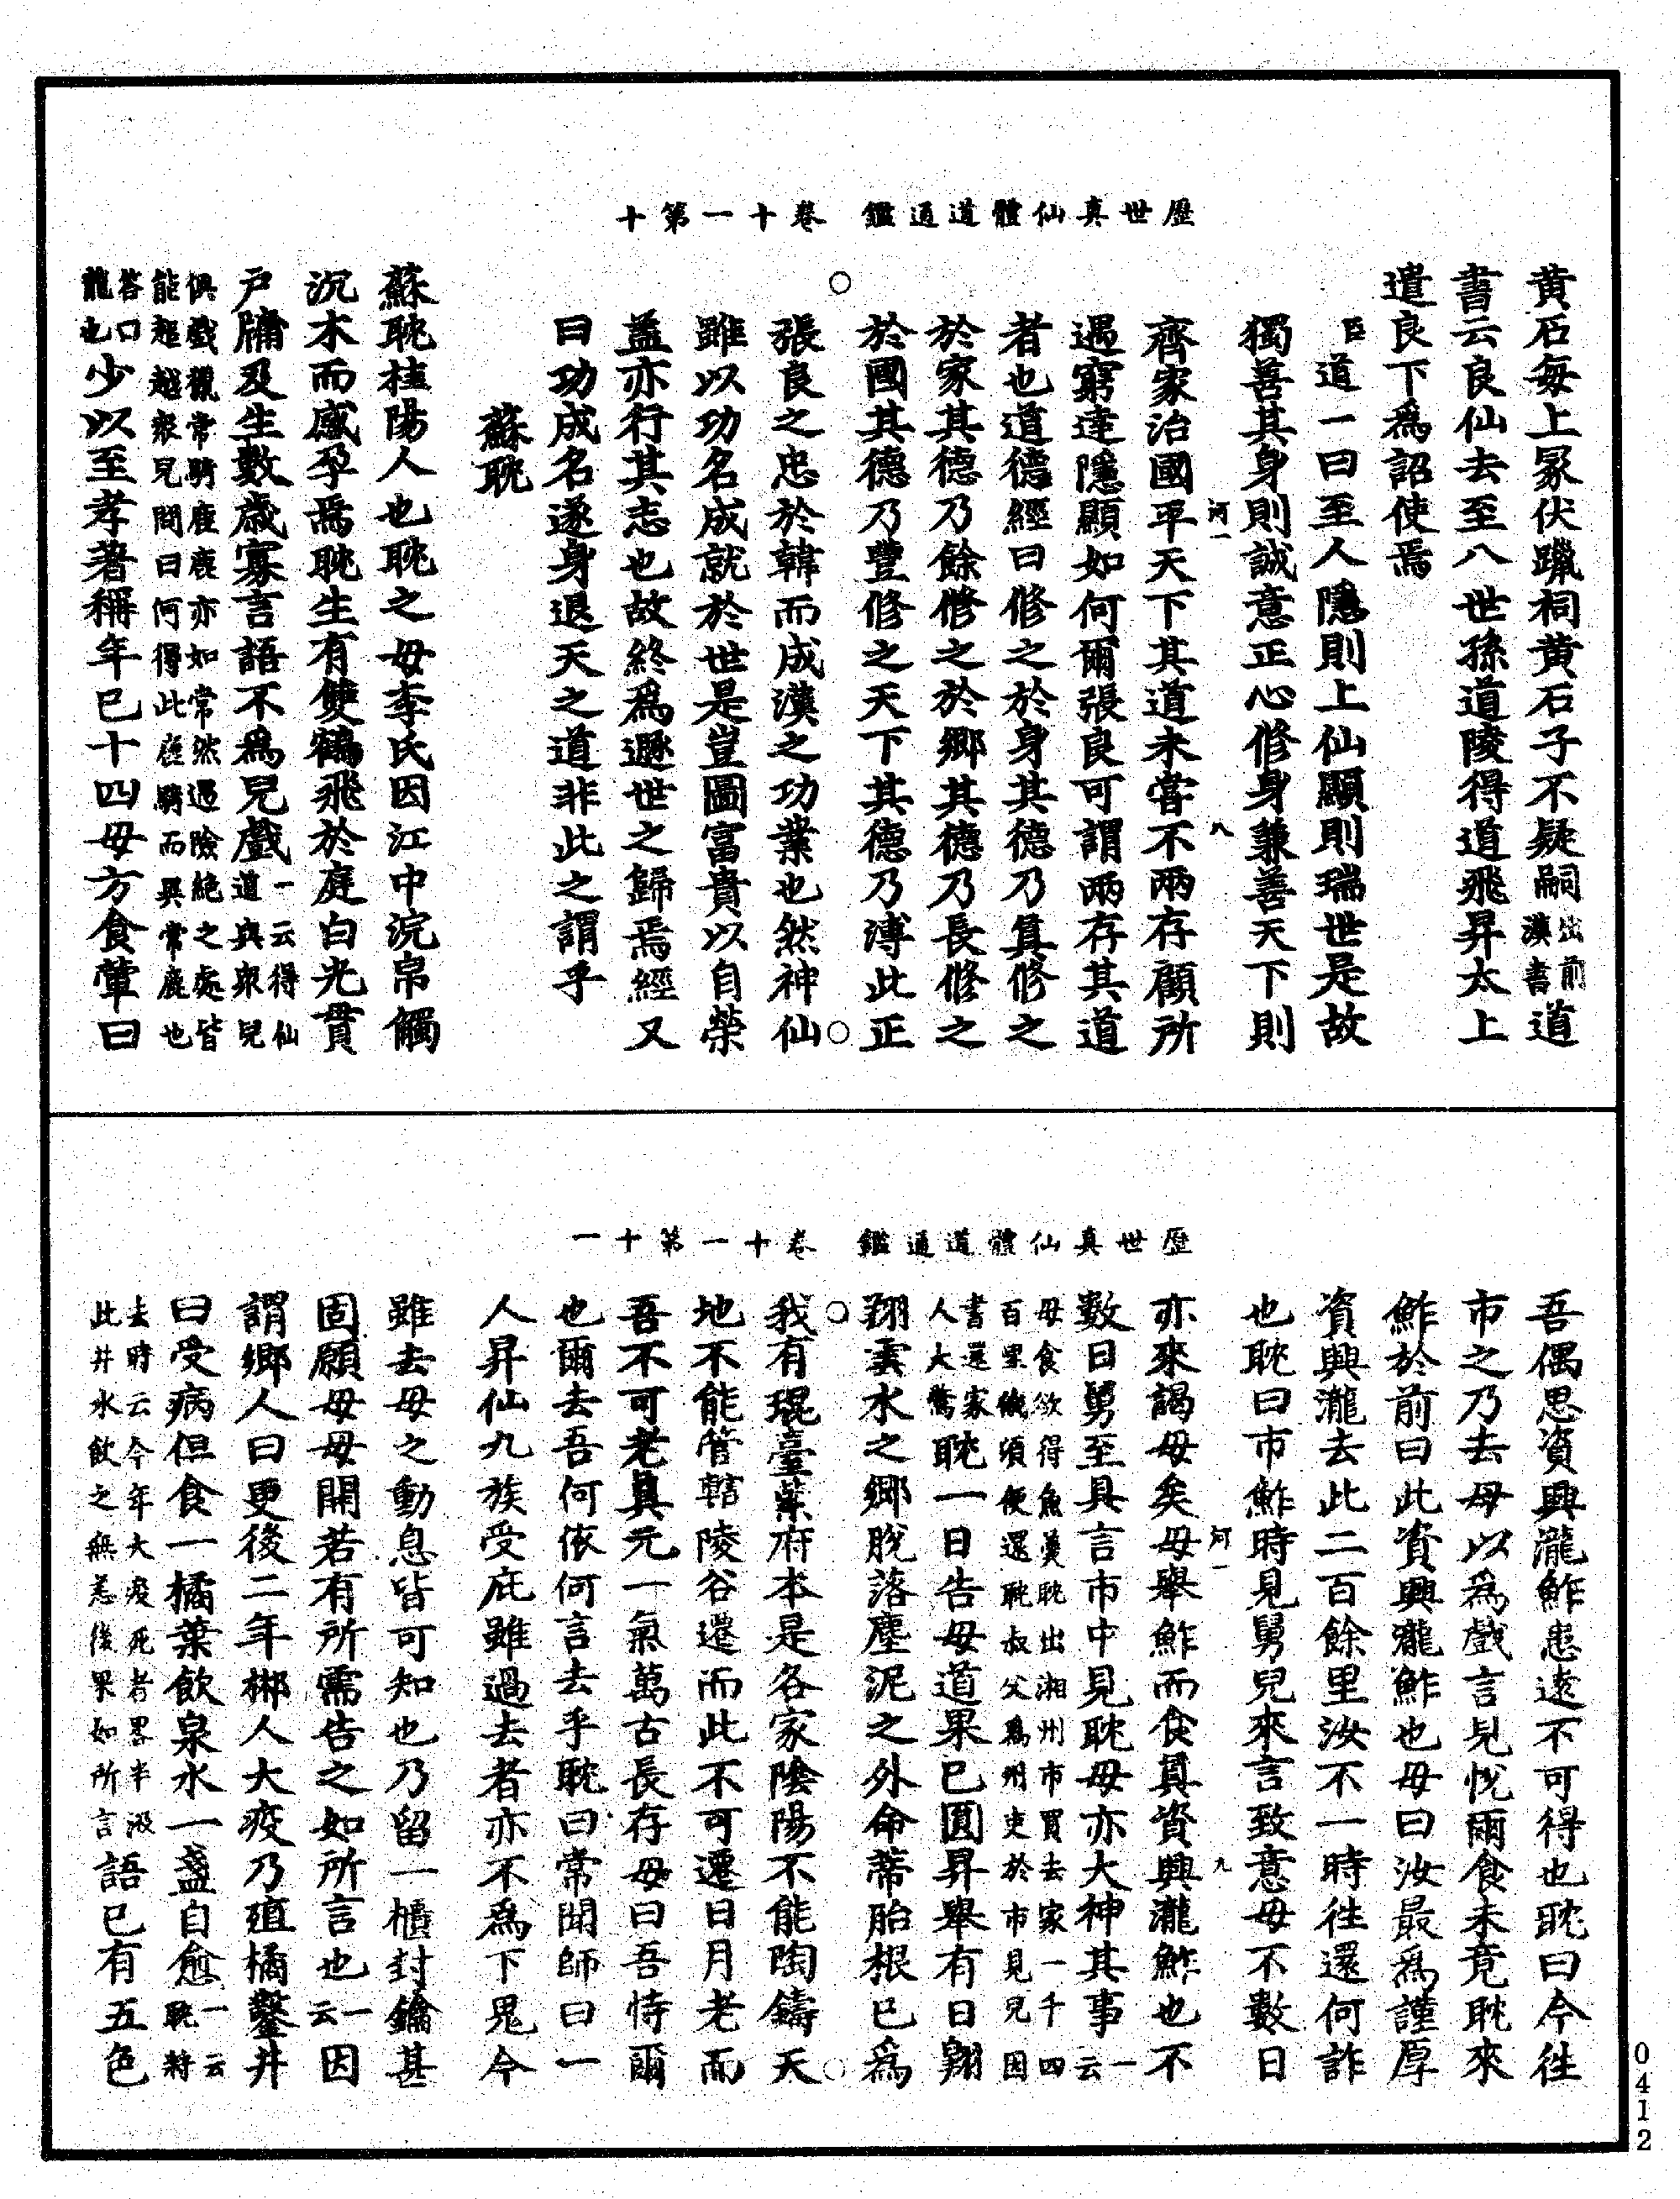 歷世真仙體道通鑑　卷十一第十
黃石每上冢伏臘祠黃石子不疑嗣出前漢書道
書云良仙去至八世孫道陵得道飛昇太上
遣良下為詔使焉
臣道一曰至人隱則上仙顯則瑞世是故
獨善其身則誠意正心修身兼善天下則
河一　八
齊家治國平天下其道未嘗不兩存顧所
遇窮達隱顯如何爾張良可謂兩存其道
者也道德經曰修之於身其德乃真修之
於家其德乃餘修之於鄉其德乃長修之
於國其德乃豐修之天下其德乃溥此正
張良之忠於韓而成漢之功業也然神仙
雖以功名成就於世是豈圖富貴以自榮
蓋亦行其志也故終為遯世之歸焉經又
曰功成名遂身退天之道非此之謂乎
蘇耽
蘇耽桂陽人也耽之母李氏因江中浣帛觸
沉木而感孕焉耽生有雙鶴飛於庭白光貫
戶牖及生數歲寡言語不為兒戲一云得仙道與眾兒
俱戲獵常騎鹿鹿亦如常然遇險絕之處皆能超越眾兒問曰何得此鹿騎而異常鹿也
答曰龍也少以至孝著稱年已十四母方食葷曰
歷世真仙體道通鑑　卷十一第十一
吾偶思資興瀧鮓患遠不可得也耽曰今往
市之乃去母以為戲言見悅爾食未竟耽來
鮓於前曰此資興瀧鮓也母曰汝最為謹厚
資興瀧去此二百餘里汝不一時往還何詐
也耽曰市鮓時見舅兒來言致意母不數日
河一　九
亦來謁母矣母舉鮓而食真資興瀧鮓也不
數日舅至具言市中見耽母亦大神其事一云
母食欲得魚羹耽出湘州市買去家一千四百里俄頃便還耽叔父為州吏於市見兒因
書還家人大驚耽一日告母道果已圓昇舉有日翱
翔雲水之鄉脫落塵泥之外命蒂胎根已為
我有琨臺紫府本是各家陰陽不能陶鑄天
地不能管轄陵谷遷而此不可遷日月老而
吾不可老真元一氣萬古長存母曰吾恃爾
也爾去吾何依何言去乎耽曰常聞師曰一
人昇仙九族受庇雖過去者亦不為下鬼今
雖去母之動息皆可知也乃留一櫃封鑰甚
固願母母開若有所需告之如所言也一云因
謂鄉人曰更後二年郴人大疫乃殖橘鑿井
曰受病但食一橘葉飲泉水一盞自愈一云耽將
去時云今年大疫死者畧半汲此井水飲之無恙後果如所言語已有五色
0412